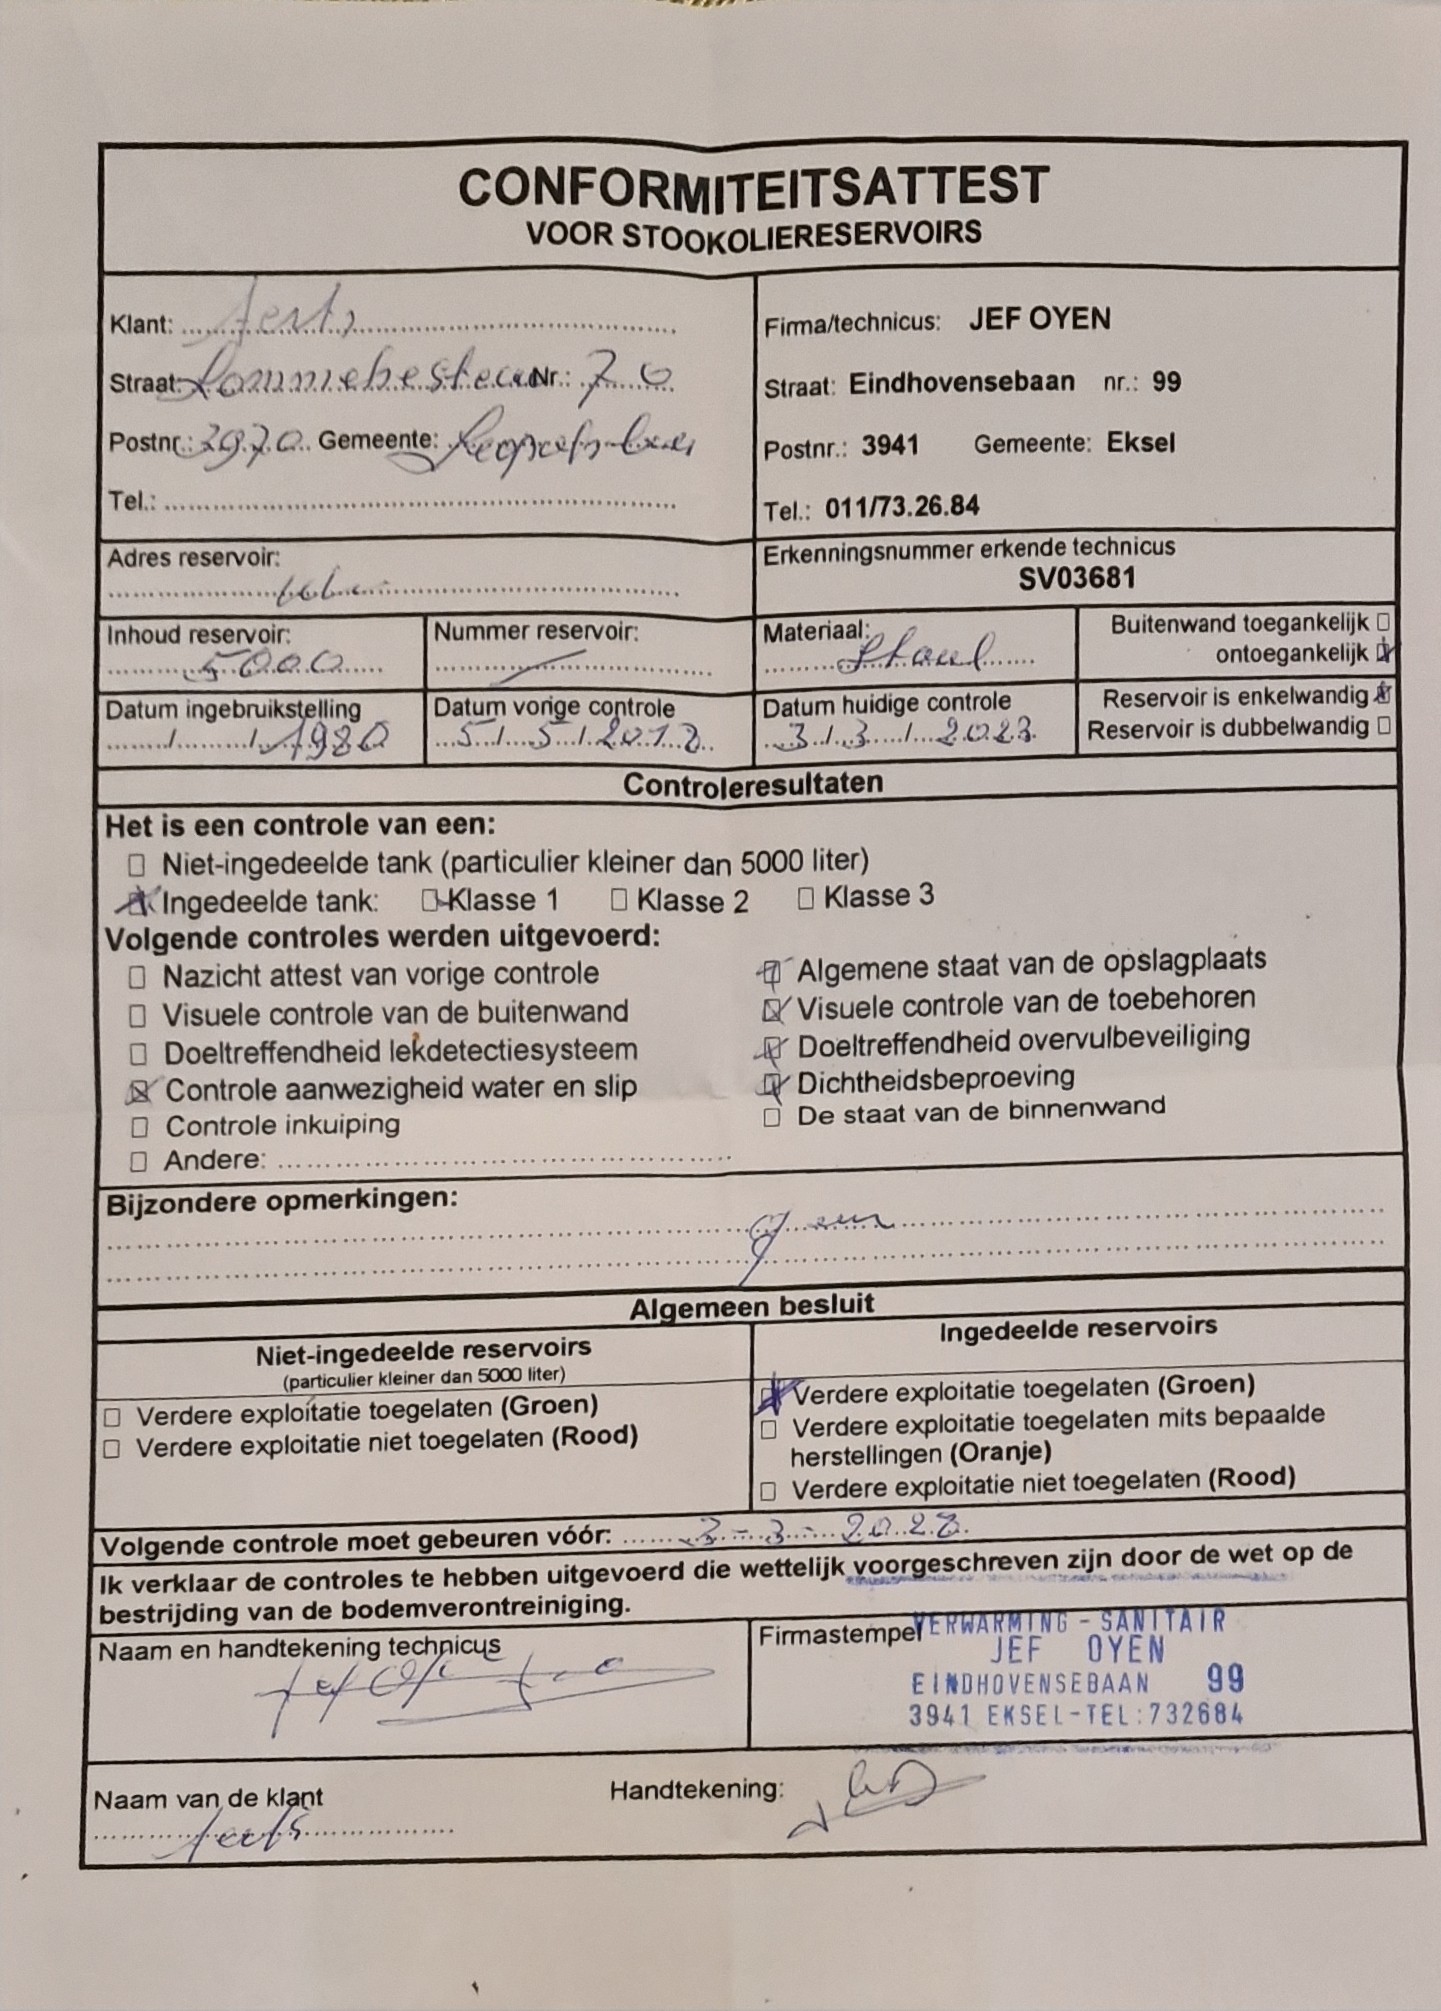 CONFORMITEITSATTEST
VOOR STOOKOLIERESERVOIRS
Klant: Aerts
Straat: Nr.: 70
Postnr.: 3970 Gemeente: Leopoldsburg
Tel.:
Firma/technicus: JEF OYEN
Straat: Eindhovensebaan nr.: 99
Postnr.: 3941 Gemeente: Eksel
Tel.: 011/73.26.84
Adres reservoir:
Erkenningsnummer erkende technicus
SV03681
Inhoud reservoir:
5000
Nummer reservoir:
Materiaal:
Staal
Buitenwand toegankelijk
ontoegankelijk
Datum ingebruikstelling
/ / 1980
Datum vorige controle
5/5/2018
Datum huidige controle
3/3/2023
Reservoir is enkelwandig
Reservoir is dubbelwandig
Controleresultaten
Het is een controle van een:
Niet-ingedeelde tank (particulier kleiner dan 5000 liter)
Ingedeelde tank: Klasse 1 Klasse 2 Klasse 3
Volgende controles werden uitgevoerd:
Nazicht attest van vorige controle
Visuele controle van de buitenwand
Doeltreffendheid lekdetectiesysteem
Controle aanwezigheid water en slip
Controle inkuiping
Andere:
Algemene staat van de opslagplaats
Visuele controle van de toebehoren
Doeltreffendheid overvulbeveiliging
Dichtheidsbeproeving
De staat van de binnenwand
Bijzondere opmerkingen:
geen
Algemeen besluit
Niet-ingedeelde reservoirs
(particulier kleiner dan 5000 liter)
Verdere exploitatie toegelaten (Groen)
Verdere exploitatie niet toegelaten (Rood)
Ingedeelde reservoirs
Verdere exploitatie toegelaten (Groen)
Verdere exploitatie toegelaten mits bepaalde
herstellingen (Oranje)
Verdere exploitatie niet toegelaten (Rood)
Volgende controle moet gebeuren vóór: 3-3-2028
Ik verklaar de controles te hebben uitgevoerd die wettelijk voorgeschreven zijn door de wet op de
bestrijding van de bodemverontreiniging.
Naam en handtekening technicus
Firmastempel
VERWARMING - SANITAIR
JEF OYEN
EINDHOVENSEBAAN 99
3941 EKSEL-TEL:732684
Naam van de klant
Aerts
Handtekening: